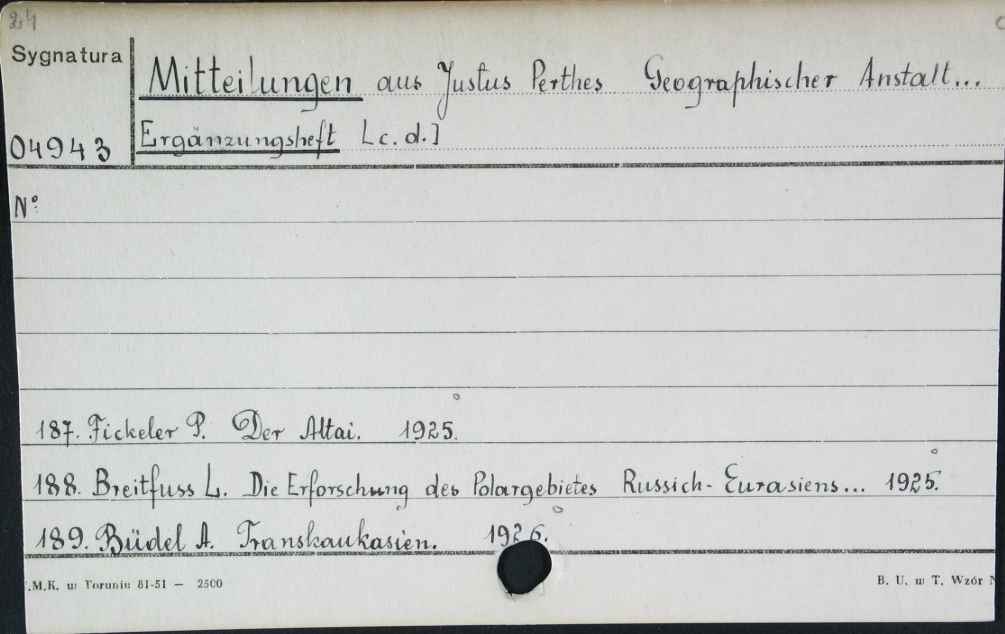 24
Sygnatura
Mitteilungen aus Justus Perthes Geographischer Anstalt...
04943
Ergänzungsheft [c.d.]
N°
187. Fickeler P. Der Altai. 1925.
188. Breitfuss L. Die Erforschung des Polargebietes Russich-Eurasiens... 1925.
189. Büdel A. Transkaukasien. 1926.
.M.K. w Toruniu 81-51 — 2500
B. U. w T. Wzór